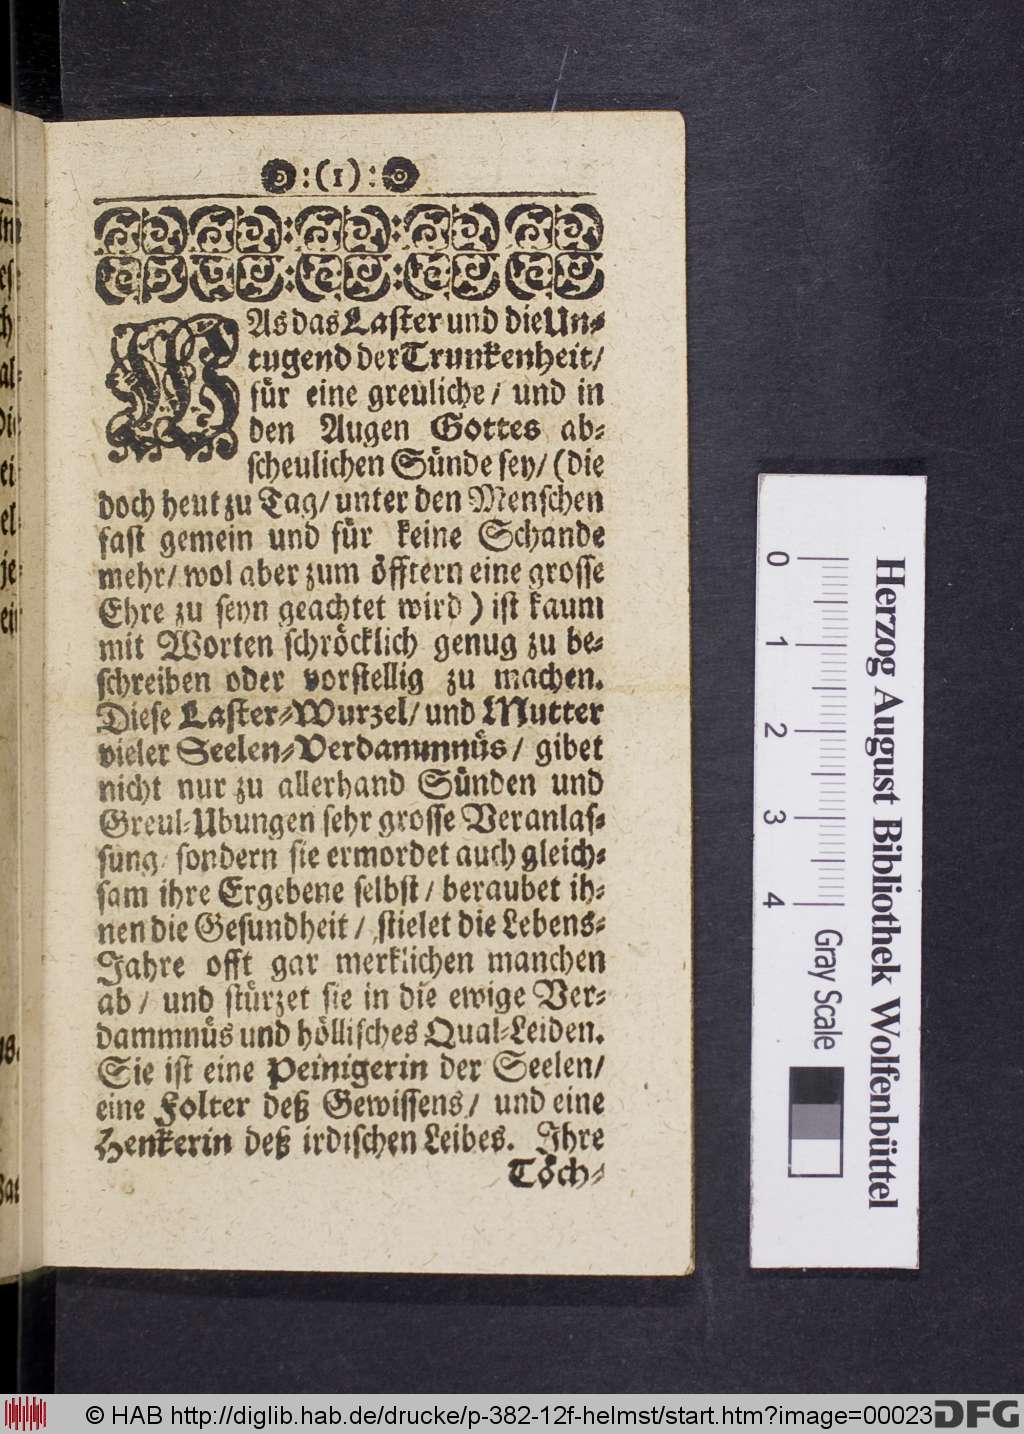 :(1):
WAs das Laster und die Un-
tugend der Trunkenheit/
für eine greuliche/ und in
den Augen Gottes ab-
scheulichen Sünde sey/ (die
doch heut zu Tag/ unter den Menschen
fast gemein und für keine Schande
mehr/ wol aber zum öfftern eine grosse
Ehre zu seyn geachtet wird) ist kaum
mit Worten schröcklich genug zu be-
schreiben oder vorstellig zu machen.
Diese Laster-Wurzel/ und Mutter
vieler Seelen-Verdammnüs/ gibet
nicht nur zu allerhand Sünden und
Greul-Ubungen sehr grosse Veranlas-
sung/ sondern sie ermordet auch gleich-
sam ihre Ergebene selbst/ beraubet ih-
nen die Gesundheit/ stielet die Lebens-
Jahre offt gar merklichen manchen
ab/ und stürzet sie in die ewige Ver-
dammnüs und höllisches Qual-Leiden.
Sie ist eine Peinigerin der Seelen/
eine Folter deß Gewissens/ und eine
Henkerin deß irdischen Leibes. Ihre
Töch-
0 1 2 3 4
Gray Scale
Herzog August Bibliothek Wolfenbüttel
© HAB http://diglib.hab.de/drucke/p-382-12f-helmst/start.htm?image=00023
DFG